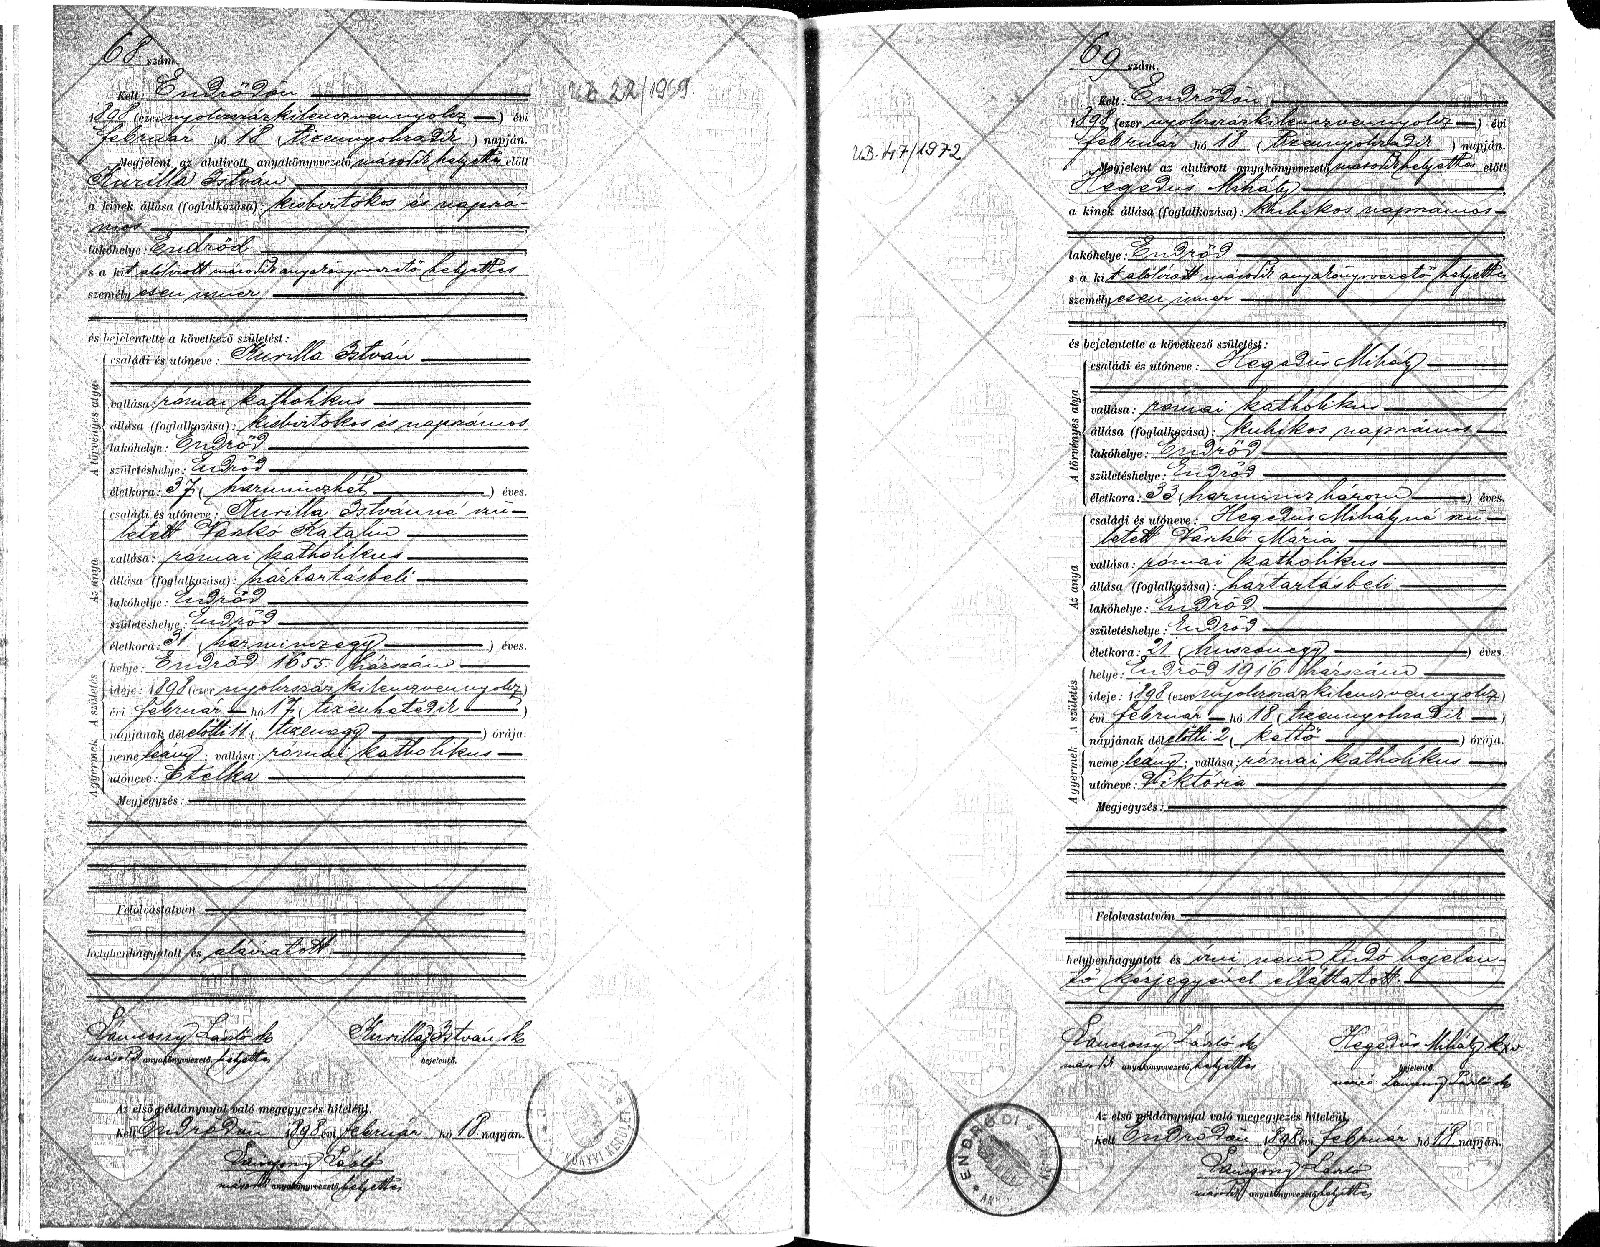 68 szám.
Kelt: Endrődön
1898 (ezer nyolczszázkilenczvennyolcz) évi
február hó 18 (tizennyolczadik) napján.
Megjelent az alulirott anyakönyvvezető második helyettes előtt
Kurilla István
a kinek állása (foglalkozása): kisbirtokos és napszá-
mos
lakóhelye: Endrőd
s a kit alólirott második anyakönyvvezető helyettes
személyesen ismer
és bejelentette a következő születést:
A törvényes atya
családi és utóneve: Kurilla István
vallása: római katholikus
állása (foglalkozása): kisbirtokos és napszámos
lakóhelye: Endrőd
születéshelye: Endrőd
életkora: 37 (harminczhét) éves.
Az anya
családi és utóneve: Kurilla Istvánné szü-
letett Vaskó Katalin
vallása: római katholikus
állása (foglalkozása): háztartásbeli
lakóhelye: Endrőd
születéshelye: Endrőd
életkora: 31 (harminczegy) éves.
A születés
helye: Endrőd 1655. házszám
ideje: 1898 (ezer nyolczszázkilenczvennyolcz)
évi február hó 17 (tizenhetedik)
napjának délelőtti 11 (tizenegy) órája.
A gyermek
neme: leány; vallása: római katholikus
utóneve: Etelka
Megjegyzés:
Felolvastatván
helybenhagyatott és aláiratott.
László sk Kurilla István sk
második anyakönyvvezető helyettes bejelentő.
Az első példánynyal való megegyezés hiteléül.
Kelt Endrődön 1898 évi február hó 18 napján.
László
második anyakönyvvezető helyettes
22/1969.
69 szám.
Kelt: Endrődön
1898 (ezer nyolczszázkilenczvennyolcz) évi
február hó 18 (tizennyolczadik) napján.
Megjelent az alulirott anyakönyvvezető második helyettes előtt
Hegedüs Mihály
a kinek állása (foglalkozása): kubikos napszámos
lakóhelye: Endrőd
s a kit alólirott második anyakönyvvezető helyettes
személyesen ismer
és bejelentette a következő születést:
A törvényes atya
családi és utóneve: Hegedüs Mihály
vallása: római katholikus
állása (foglalkozása): kubikos napszámos
lakóhelye: Endrőd
születéshelye: Endrőd
életkora: 33 (harminczhárom) éves.
Az anya
családi és utóneve: Hegedüs Mihályné szü-
letett Vaskó Mária
vallása: római katholikus
állása (foglalkozása): háztartásbeli
lakóhelye: Endrőd
születéshelye: Endrőd
életkora: 21 (huszonegy) éves.
A születés
helye: Endrőd 1916. házszám
ideje: 1898 (ezer nyolczszázkilenczvennyolcz)
évi február hó 18 (tizennyolczadik)
napjának délelőtti 2 (kettő) órája.
A gyermek
neme: leány; vallása: római katholikus
utóneve: Viktória
Megjegyzés:
Felolvastatván
helybenhagyatott és irni nem tudó bejelen-
tő kézjegyével elláttatott.
László sk Hegedüs Mihály
második anyakönyvvezető helyettes bejelentő.
László sk
Az első példánynyal való megegyezés hiteléül.
Kelt Endrődön 1898 évi február hó 18 napján.
László
második anyakönyvvezető helyettes
47/1972
ENDRŐDI